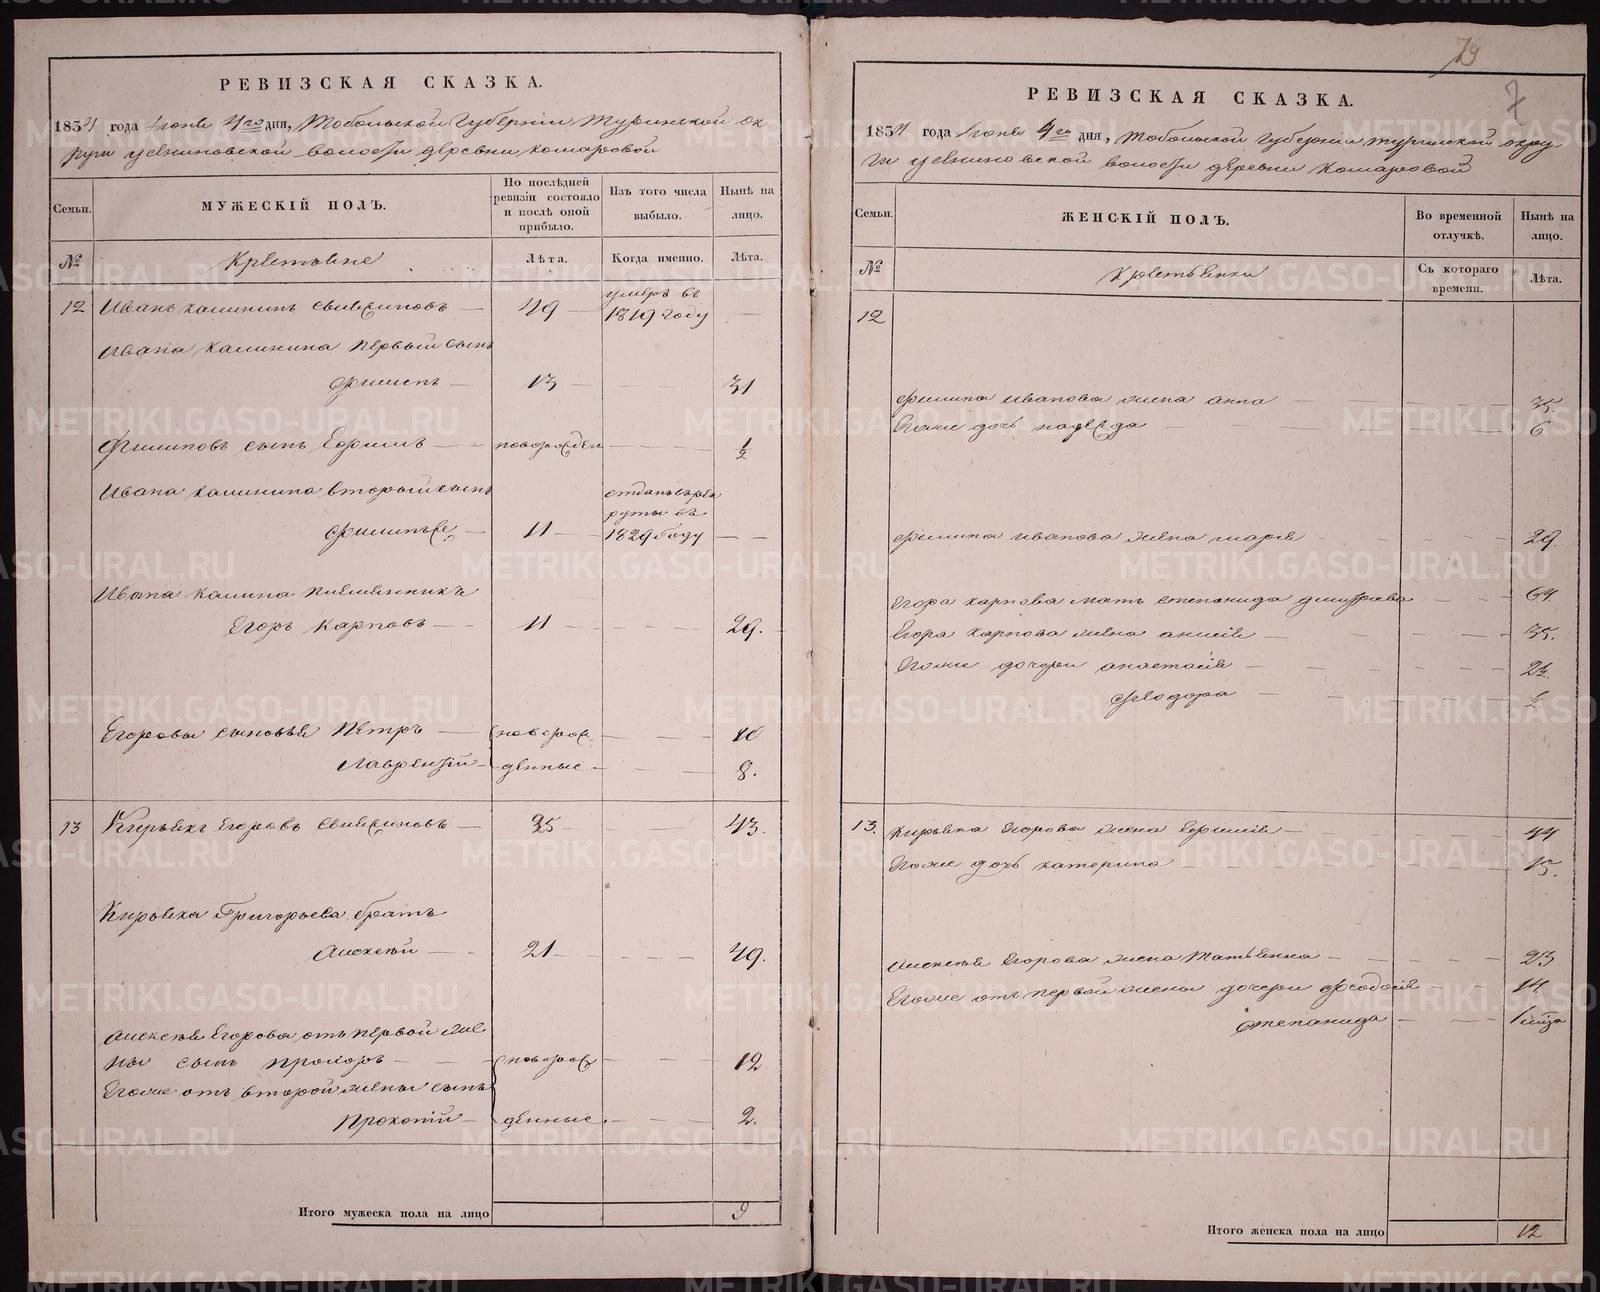 РЕВИЗСКАЯ СКАЗКА.
1834 года Июня 4го дня, Тобольской Губернии Туринской ок
руги волости деревни Комаровой
Семьи.
МУЖЕСКІЙ ПОЛЪ.
По послѣдней ревизіи состояло и послѣ оной прибыло.
Изъ того числа выбыло.
Нынѣ на лицо.
№
Крестьяне
Лѣта.
Когда именно.
Лѣта.
12 Иванъ Калининъ 49 умеръ въ 1819 году
Ивана Калинина первый сынъ
Филипъ 13 31
Филиповъ сынъ Ефримъ новорожден ½
Ивана Калинина второй сынъ отданъ въ рек
руты въ
11 1829 году
Ивана Калина племянникъ
Егоръ Карповъ 11 29.
Егоровы сыновья Петръ новорож 10
Лаврентій денные 8.
13 Кирьякъ Егоровъ 25 43.
Кирьяка Григорьева братъ
Алексѣй 21 49.
Алексея Егорова отъ первой же
ны сынъ новорож 12
Егоже отъ второй жены сынъ
Прокопій денные 2.
Итого мужеска пола на лицо 9
79
7
РЕВИЗСКАЯ СКАЗКА.
1834 года Июня 4го дня, Тобольской Губерніи Туринской окру
ги волости деревни Комаровой
Семьи.
ЖЕНСКІЙ ПОЛЪ.
Во временной отлучкѣ.
Нынѣ на лицо.
№
Крестьянки
Съ котораго времени.
Лѣта.
12
Филипа Иванова жена Анна 35.
Егоже дочь Надежда 6
Филипа Иванова жена Марья 29.
Егора Карпова мать Степанида Дмитрева 64.
Егора Карпова жена 35.
Егоже дочери Анастасія 2½
Феодора ½
13. Кирьяка Егорова жена 44
Егоже дочь Катерина 15.
Алексея Егорова жена Татьянна 23
Егоже отъ первой жены дочери Феодосія 14.
Степанида
Итого женска пола на лицо 12
METRIKI.GASO-URAL.RU